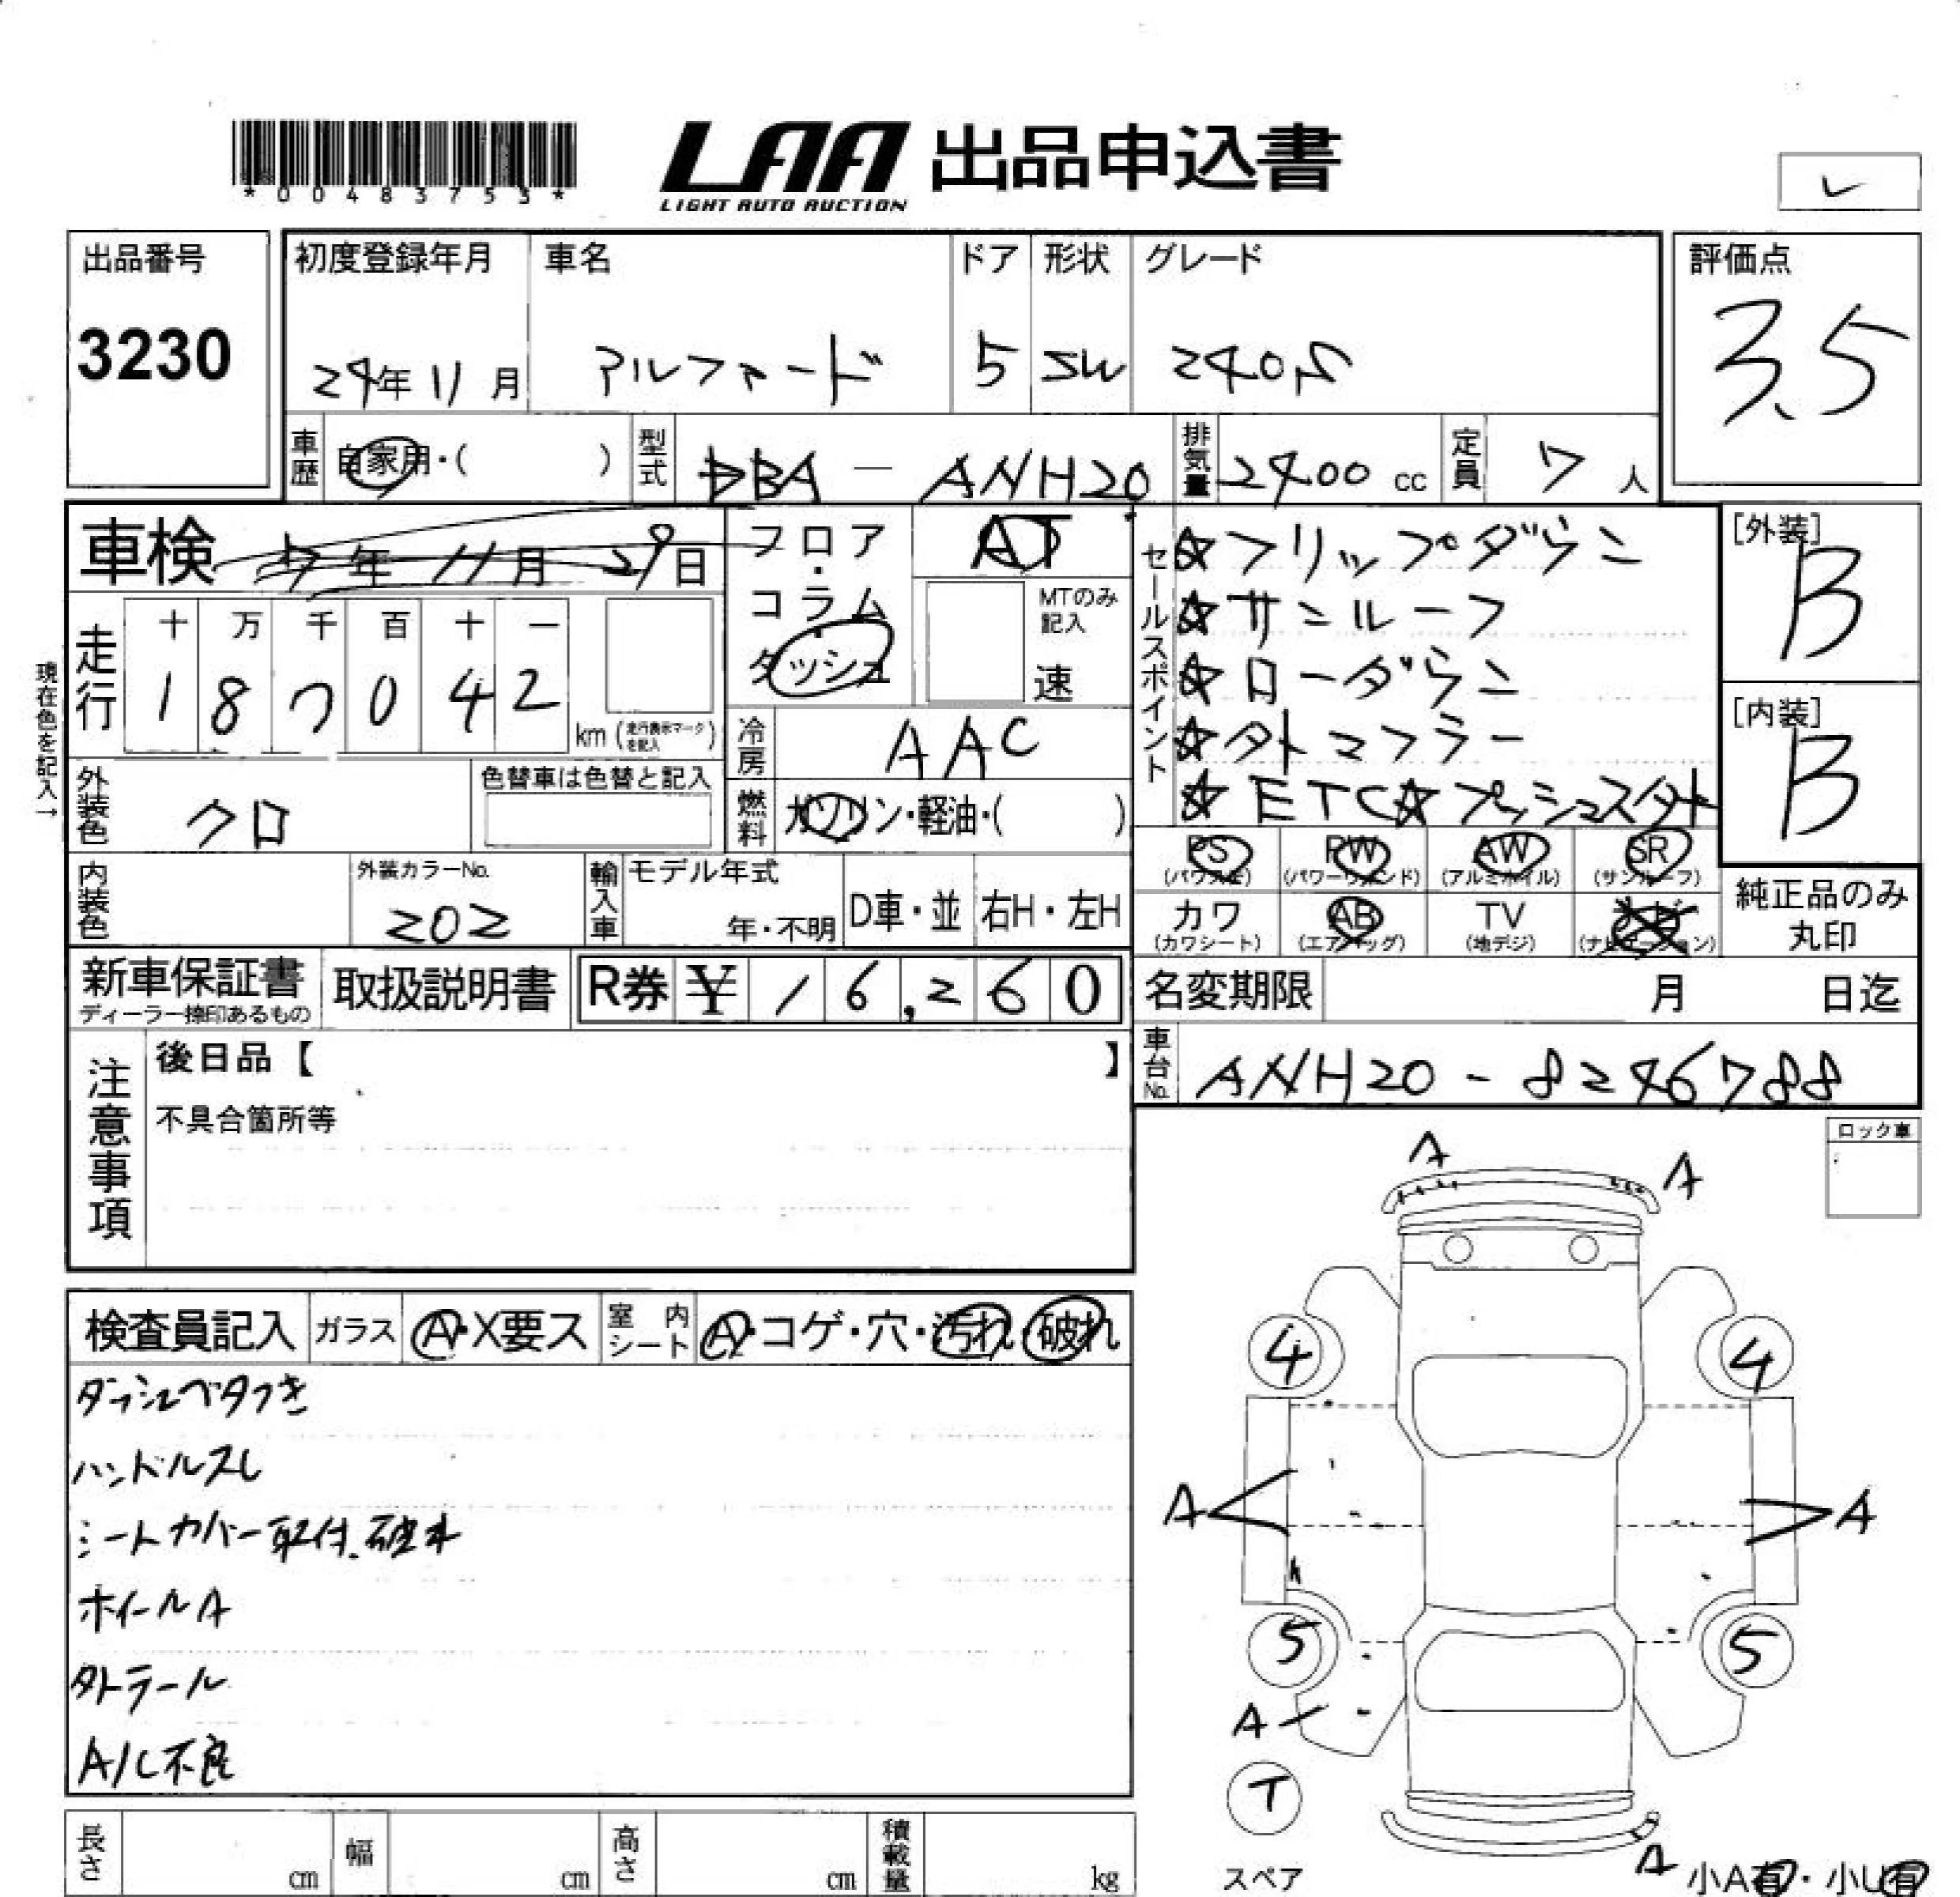 *00483753*
LAA 出品申込書
LIGHT AUTO AUCTION
レ
出品番号
3230
初度登録年月
24年11月
車名
アルファード
ドア
5
形状
SW
グレード
240S
評価点
3.5
車歴
自家用・( )
型式
DBA - ANH20
排気量
2400 cc
定員
7 人
車検
7年 11月 29日
フロア・コラム・ダッシュ
AT
MTのみ記入
速
セールスポイント
☆フリップダウン
☆サンルーフ
☆ローダウン
☆外マフラー
☆ETC☆プッシュスタート
[外装]
B
[内装]
B
現在色を記入→
走行
十 万 千 百 十 一
1 8 7 0 4 2
km (走行表示マークを記入)
冷房
AAC
外装色
クロ
色替車は色替と記入
燃料
ガソリン・軽油・( )
PS (パワステ)
PW (パワーウィンド)
AW (アルミホイル)
SR (サンルーフ)
カワ (カワシート)
AB (エアバッグ)
TV (地デジ)
ナビ (ナビゲーション)
純正品のみ
丸印
内装色
外装カラーNo.
202
輸入車
モデル年式
年・不明
D車・並
右H・左H
新車保証書
ディーラー捺印あるもの
取扱説明書
R券 ¥ 16,260
名変期限
月 日迄
車台No.
ANH20 - 8246788
注意事項
後日品【 】
不具合箇所等
ロック車
検査員記入
ガラス
A・X要ス
室内シート
A・コゲ・穴・汚れ・破れ
ダッシュベタつき
ハンドルスレ
シートカバー取付.破れ
ホイールA
外テール
A/C不良
A
A
4
4
A
A
A
5
5
A
T
スペア
A
小A有・小U有
長さ
cm
幅
cm
高さ
cm
積載量
kg